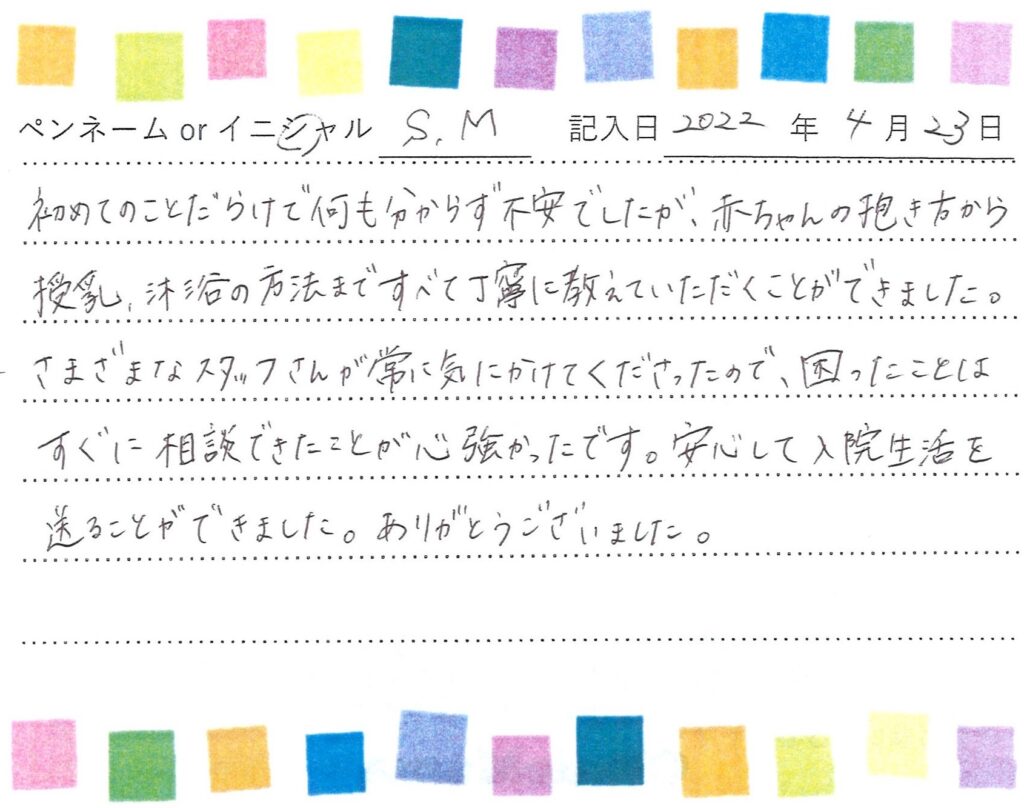 ペンネーム or イニシャル S.M 記入日 2022 年 4 月 23 日
初めてのことだらけで何も分からず不安でしたが、赤ちゃんの抱き方から
授乳、沐浴の方法まですべて丁寧に教えていただくことができました。
さまざまなスタッフさんが常に気にかけてくださったので、困ったことは
すぐに相談できたことが心強かったです。安心して入院生活を
送ることができました。ありがとうございました。